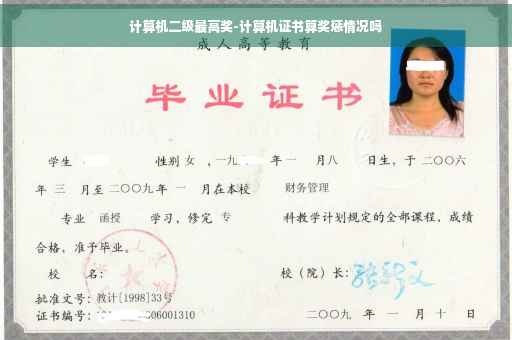 计算机二级最高奖-计算机证书算奖惩情况吗
成人高等教育
毕业证书
学生 性别 女 ，一九 年 一 月 八 日生，于 二〇〇六
年 三 月至 二〇〇九 年 一 月在本校 财务管理
专业 函授 学习，修完 专 科教学计划规定的全部课程，成绩
合格，准予毕业。
校 名： 校（院）长：
批准文号：教计[1998]33号
证书编号： 06001310 二〇〇九 年 一 月 十 日